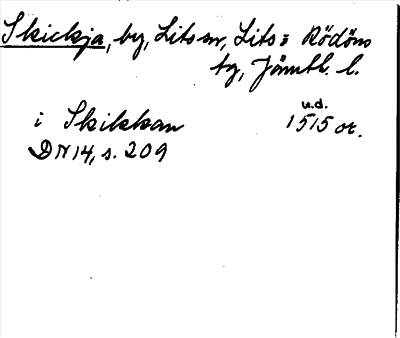 Skickja, by, Lits sn, Lits o Rödöns
tg, Jämtl. l.
u.d.
i Skikkan 1515 or.
DN 14, s. 209